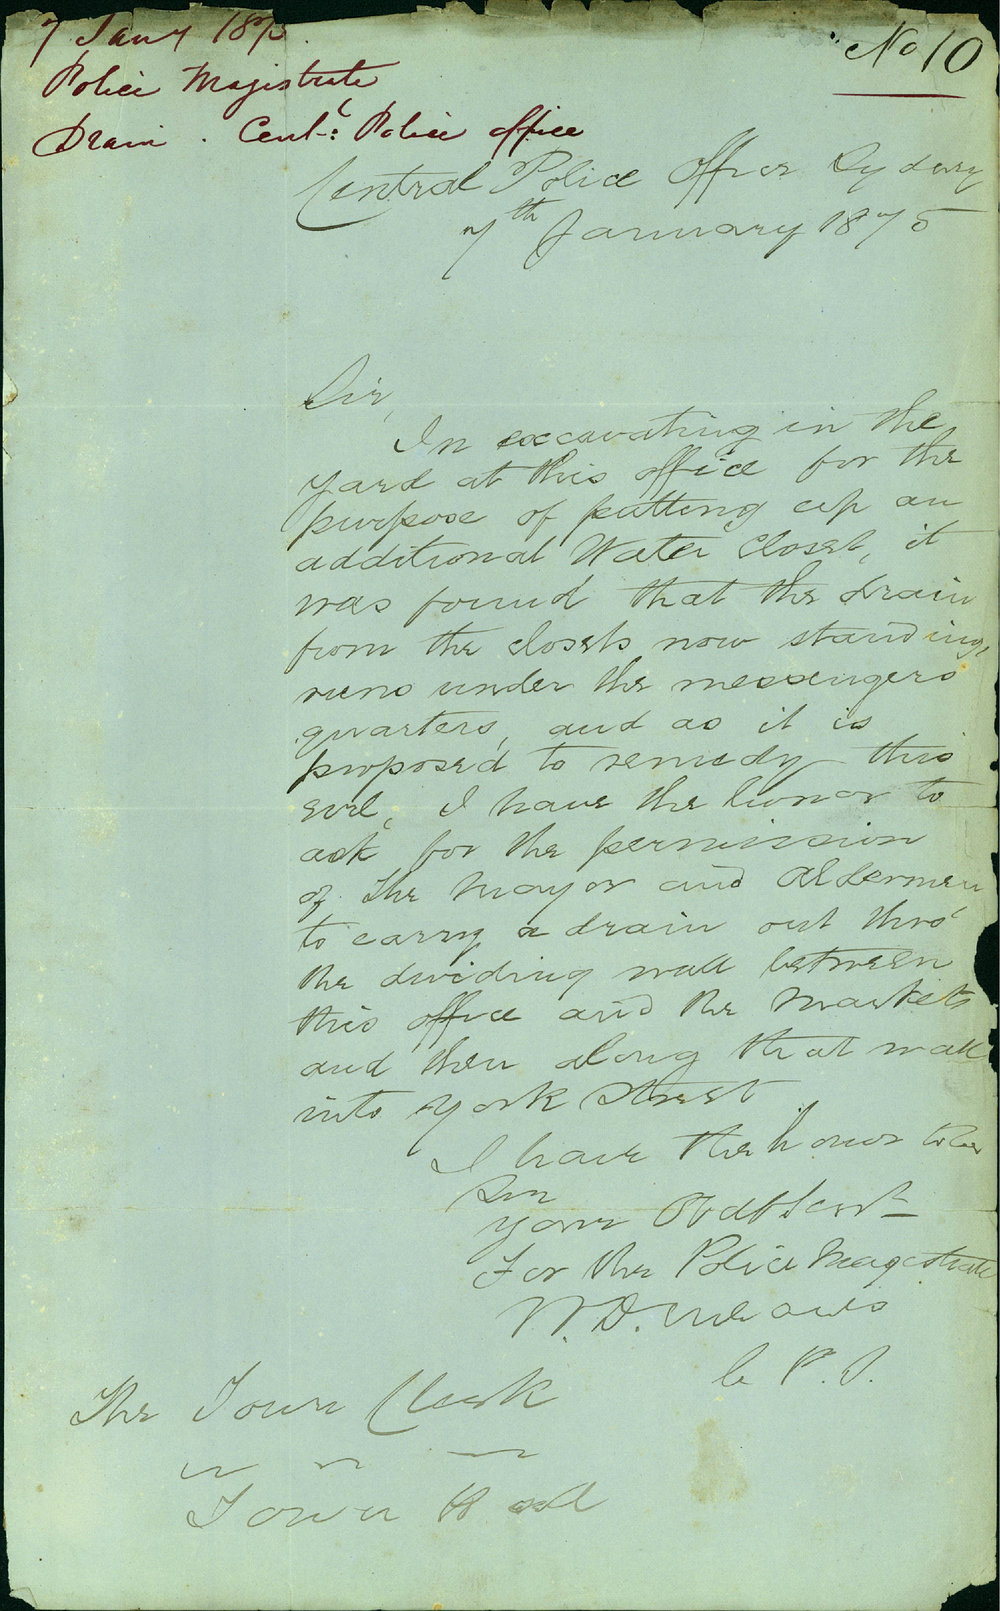 7 Jany 187
Police Magistrate
Drain . Centl: Police office
No 10
Central Police Office Sydney
7th January 1875
Sir,
In excavating in the
yard at this office for the
purpose of putting up an
additional Water Closet, it
was found that the drain
from the closets now standing,
runs under the messengers
quarters, and as it is
proposed to remedy this
evil, I have the honor to
ask for the permission
of the Mayor and Aldermen
to carry a drain out thro'
the dividing wall between
this office and the Markets
and then along that wall
into York Street
I have the honor to be
Sir
Your Obdt Servt
For the Police Magistrate
W. D. Meares
C P. S.
The Town Clerk
Town Hall